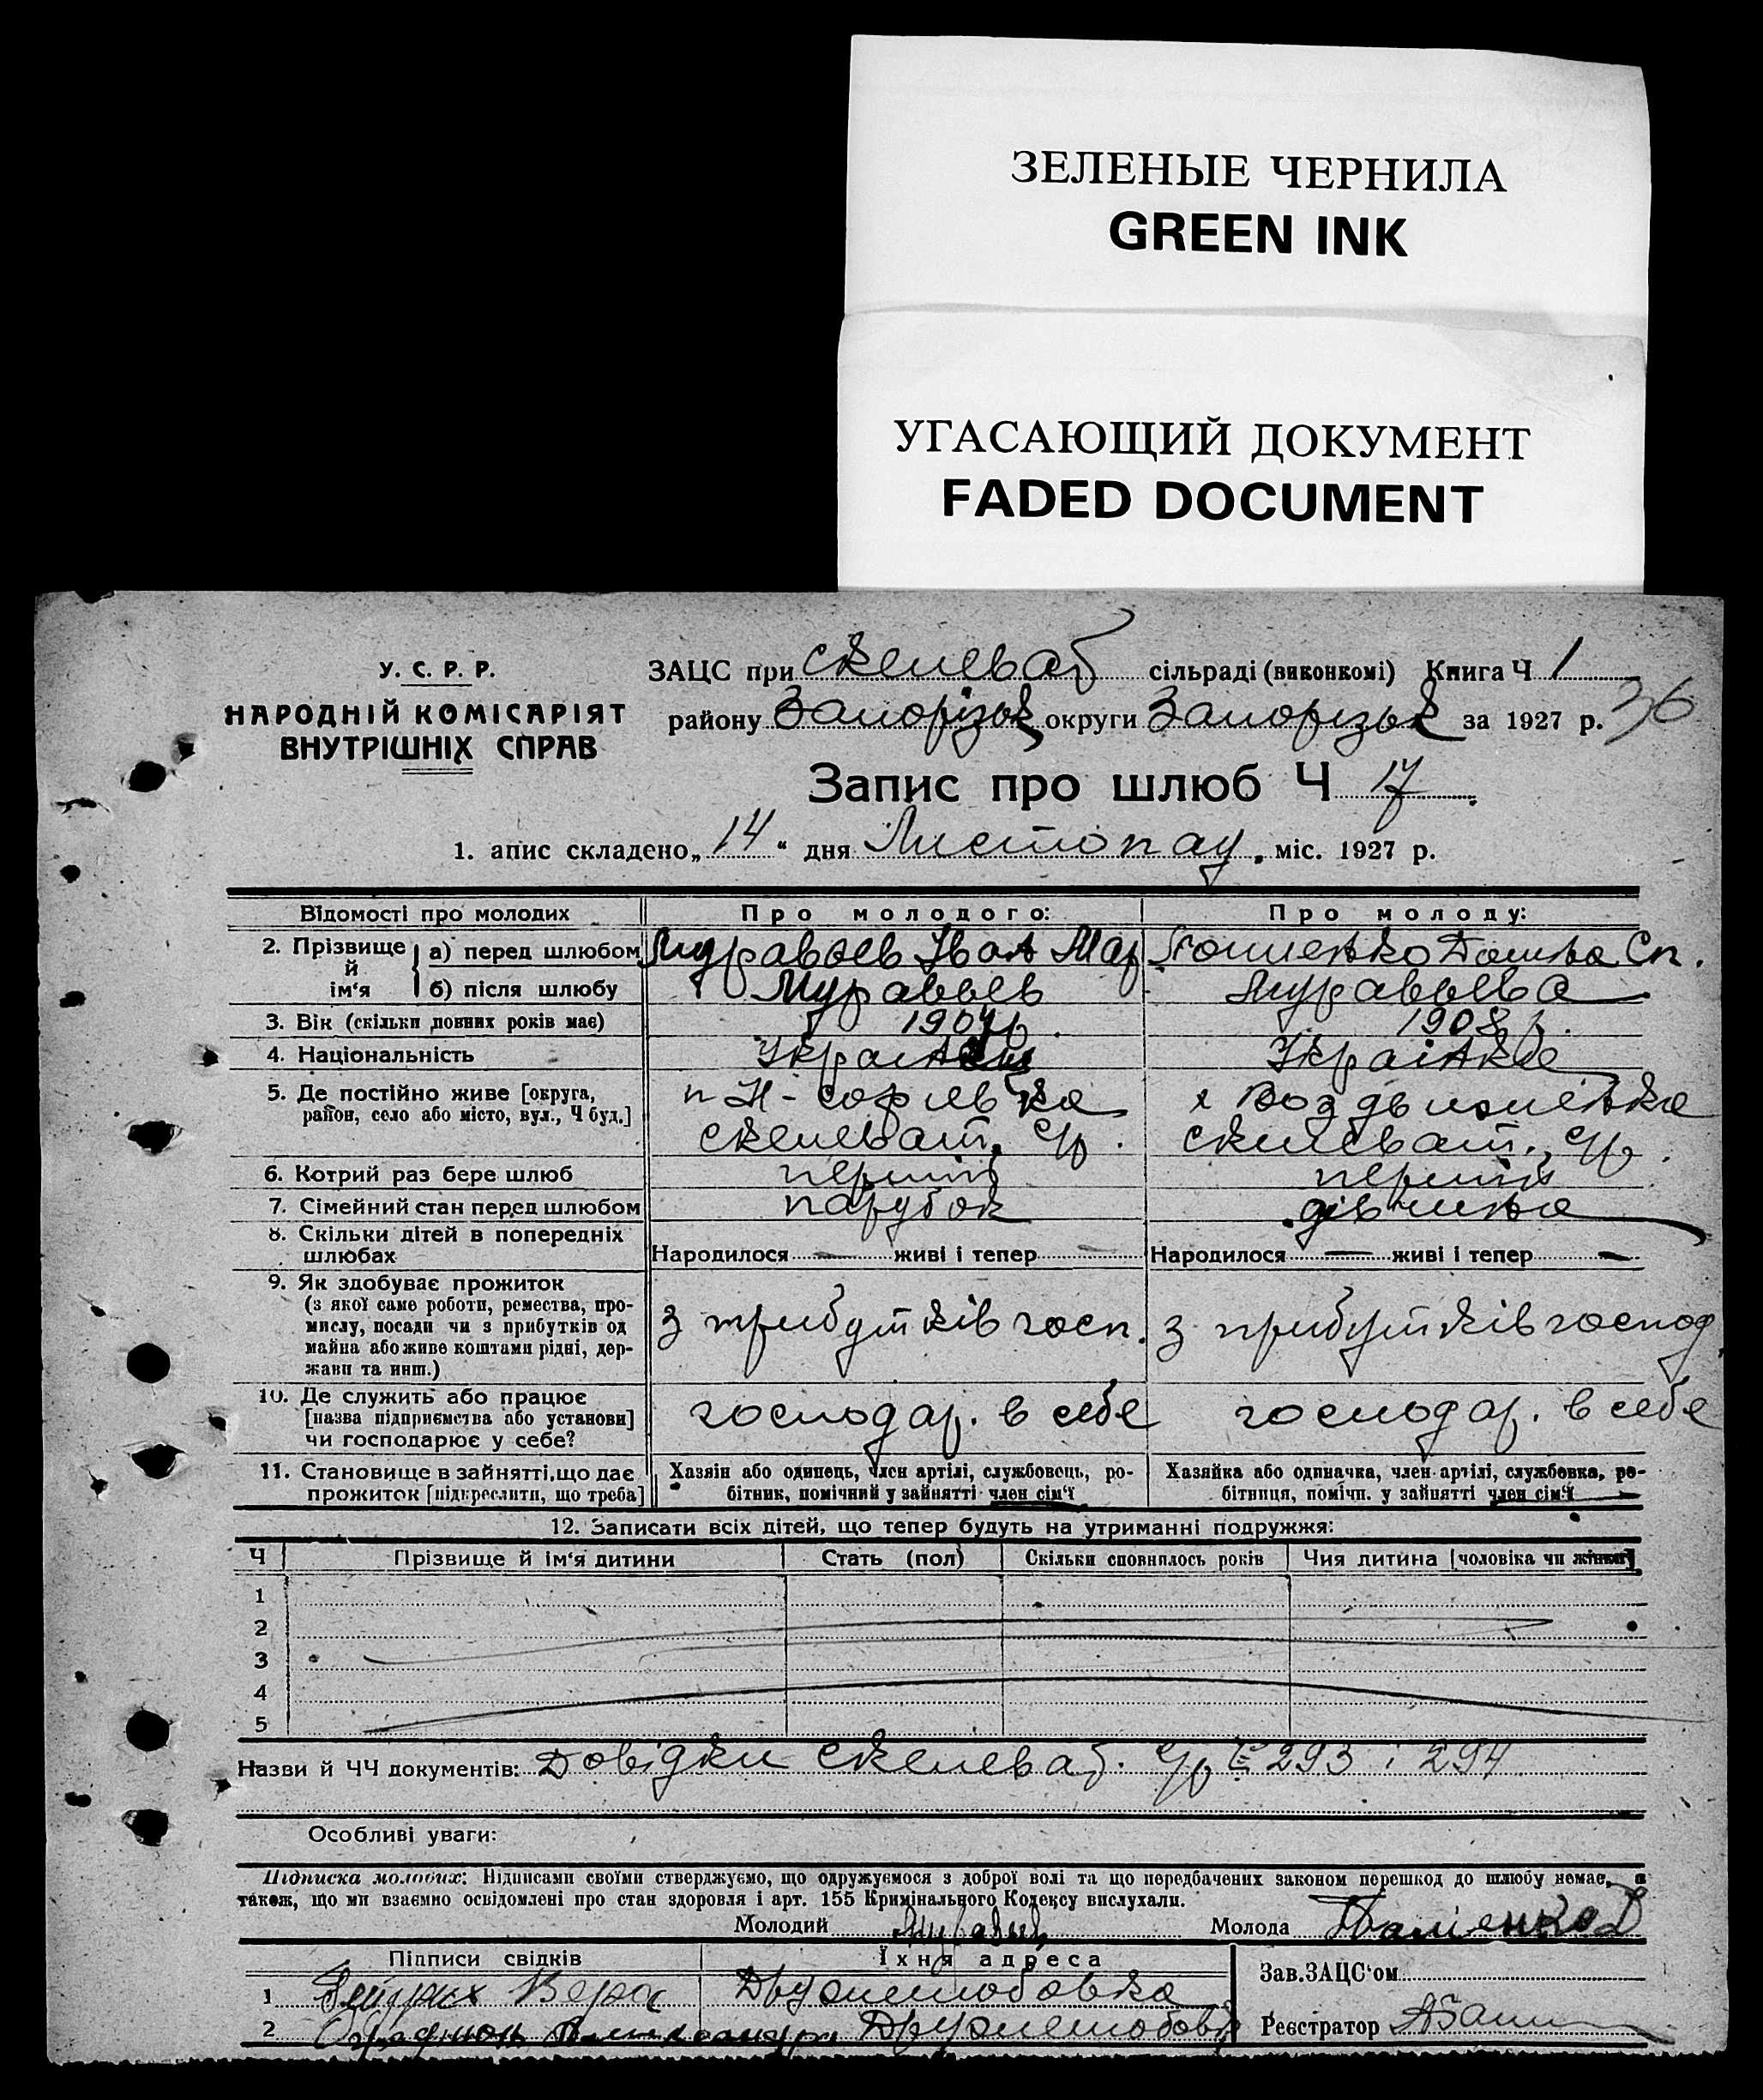 ЗЕЛЕНЫЕ ЧЕРНИЛА
GREEN INK
УГАСАЮЩИЙ ДОКУМЕНТ
FADED DOCUMENT
У. С. Р. Р.
НАРОДНІЙ КОМІСАРІЯТ
ВНУТРІШНІХ СПРАВ
ЗАЦС при Скелеват сільраді (виконкомі) Книга Ч 1
району Запорізьк округи Запорізьк за 1927 р. 36
Запис про шлюб Ч 17
1. апис складено „14“ дня Листопад, міс. 1927 р.
Відомості про молодих Про молодого: Про молоду:
2. Прізвище й ім‘я а) перед шлюбом Муравьев Іван Мар Домна Сп.
б) після шлюбу Муравьев Муравьева
3. Вік (скільки повних років має) 1907р. 1908р.
4. Національність Українец Українка
5. Де постійно живе [округа, район, село або місто, вул., Ч буд.] Н-Софіевка х Воздвиженка
Скелеват. с/р. Скелеват., с/р.
6. Котрий раз бере шлюб перший перший
7. Сімейний стан перед шлюбом парубок дівчина
8. Скільки дітей в попередніх шлюбах Народилося — живі і тепер — Народилося — живі і тепер —
9. Як здобуває прожиток
(з якої саме роботи, ремества, про-
мислу, посади чи з прибутків од
майна або живе коштами рідні, дер-
жави та инш.)
з прибутків госп. з прибутків господ.
10. Де служить або працює
[назва підприємства або установи]
чи господарює у себе?
господар. в себе господар. в себе
11. Становище в зайнятті, що дає
прожиток [підкреслити, що треба]
Хазяін або одинець, член артілі, службовець, ро-
бітник, помічний у зайнятті член сім‘ї
Хазяйка або одиначка, член артілі, службовка, ро-
бітниця, помічн. у зайнятті член сім‘ї
12. Записати всіх дітей, що тепер будуть на утриманні подружжя:
Ч Прізвище й ім‘я дитини Стать (пол) Скільки сповнилось років Чия дитина [чоловіка чи жінки]
1
2
3
4
5
Назви й ЧЧ документів: Довідки Скелеват. с/р 293 і 294
Особливі уваги:
Підписка молодих: Підписами своїми стверджуємо, що одружуємося з доброї волі та що передбачених законом перешкод до шлюбу немає, а
також, що ми взаємно освідомлені про стан здоровля і арт. 155 Кримінального Кодексу вислухали.
Молодий Молода
Підписи свідків Їхня адреса
1 Вера Дружелюбовка
2 Дружелюбовк
Зав.ЗАЦС‘ом
Реєстратор